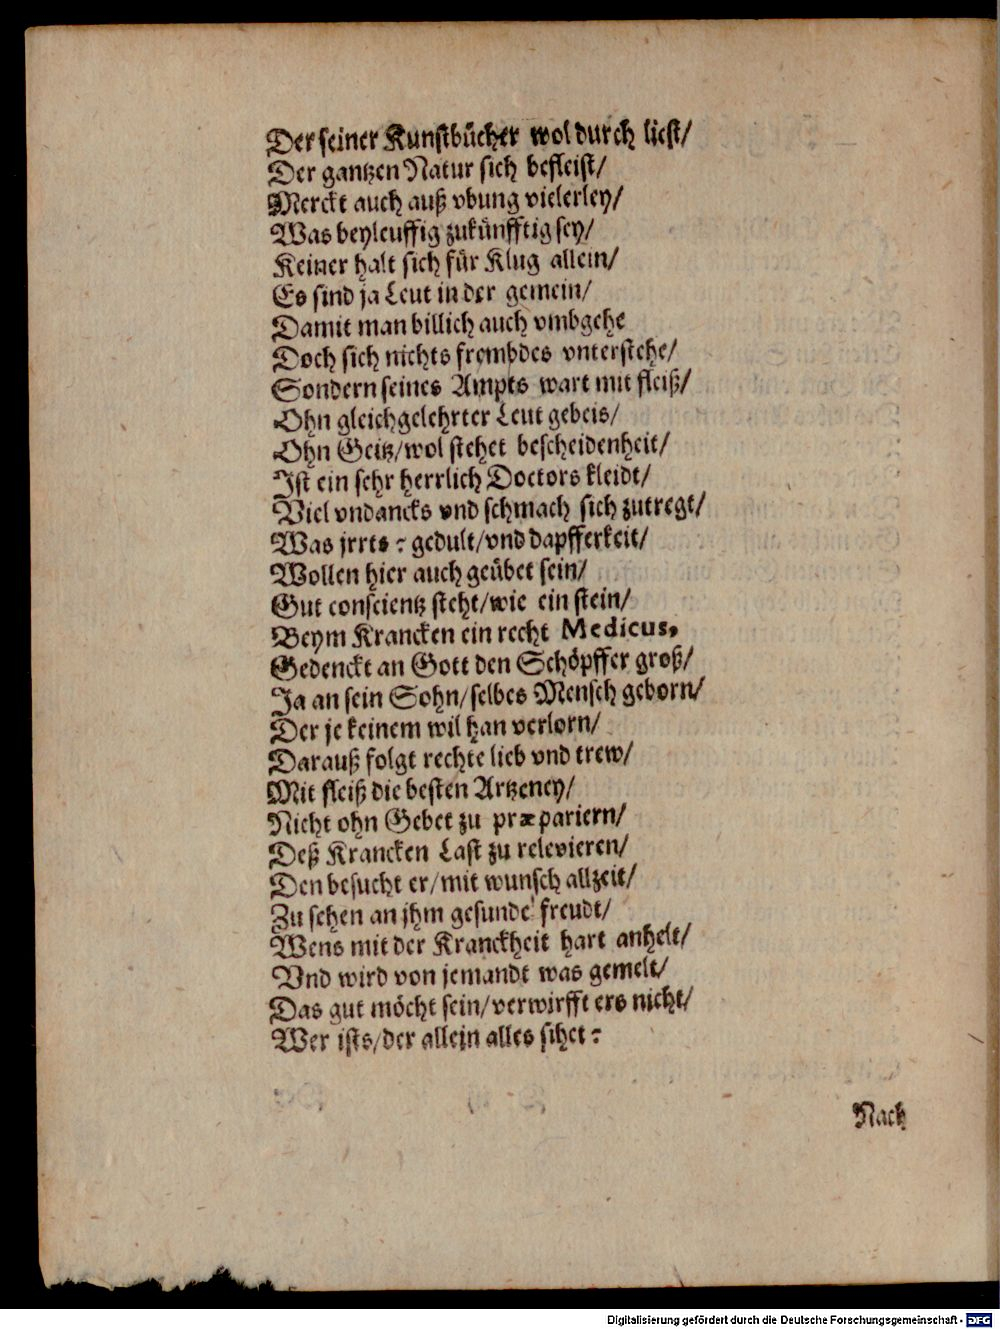 Der seiner Kunstbücher wol durch liest/
Der gantzen Natur sich befleist/
Merckt auch auß vbung vielerley/
Was beyleuffig zukünfftig sey/
Keiner halt sich für Klug allein/
Es sind ja Leut in der gemein/
Damit man billich auch vmbgehe
Doch sich nichts frembdes vnterstehe/
Sondern seines Ampts wart mit fleiß/
Ohn gleichgelehrter Leut gebeis/
Ohn Geitz/wol stehet bescheidenheit/
Ist ein sehr herrlich Doctors kleidt/
Viel vndancks vnd schmach sich zutregt/
Was jrrts? gedult/vnd dapfferkeit/
Wollen hier auch geübet sein/
Gut conscientz steht/wie ein stein/
Beym Krancken ein recht Medicus,
Gedenckt an Gott den Schöpffer groß/
Ja an sein Sohn/selbes Mensch geborn/
Der je keinem wil han verlorn/
Darauß folgt rechte lieb vnd trew/
Mit fleiß die besten Artzeney/
Nicht ohn Gebet zu præpariern/
Deß Krancken Last zu relevieren/
Den besucht er/mit wunsch allzeit/
Zu sehen an jhm gesunde freudt/
Wens mit der Kranckheit hart anhelt/
Vnd wird von jemandt was gemelt/
Das gut möcht sein/verwirfft ers nicht/
Wer ists/der allein alles sihet?
Nach
Digitalisierung gefördert durch die Deutsche Forschungsgemeinschaft - DFG